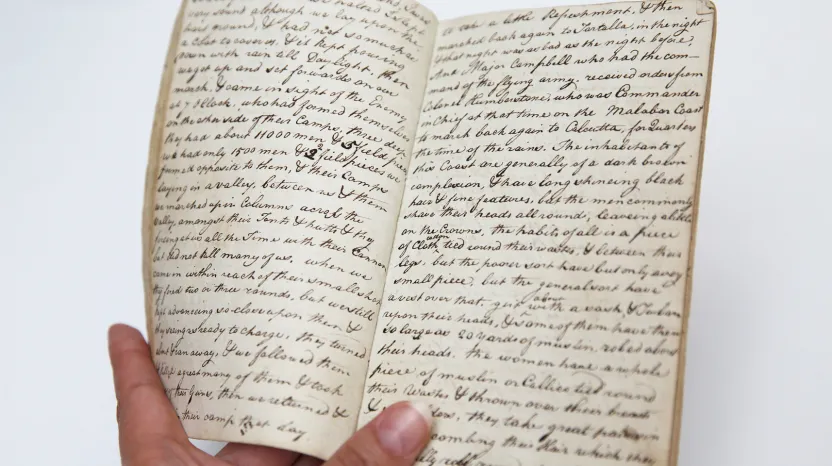 very sound although we lay upon the
bare ground, & had not so much as
a Clat to cover us, & it kept pouring
down with rain all Day light, then
we got up and set forwards on our
march, & came in sight of the Enemy
at 7 oClock, who had formed themselves
on the other side of their Camps, three deep
they had about 11000 men & 5 field pieces
we had only 1500 men & 2 field pieces we
formed opposite to them, & their Camps
laying in a valley, between us & them
we marched up in Columns across the
Valley, amongst their Tents & hutts & they
firing at us all the Time with their Cannon
but did not kill many of us. when we
came in within reach of their small shot
they fired two or three rounds, but we still
kept advancing so close upon them &
they seeing us ready to charge, they turned
about & ran away, & we followed them
& killd a great many of them & took
their Guns, then we returned &
their camp that day
to take a little Refreshment, & then
marched back again to Tortalla, in the night
& that night was as bad as the night before,
And Major Campbell who had the com-
mand of the flying army. received orders from
Colonel Humberstone, who was Commander
in Chief at that time on the Malabar Coast
to march back again to Calcutta, for Quarters
the time of the rains. The inhabitants of
this Coast are generally of a dark brown
complexion, & have long shineing black
hair & fine features, but the men commonly
shave their heads all round, leaveing a little
on the Crowns, the habits of all is a piece
of cotton Cloth tied round their wastes, & between their
legs, but the poorer sort have but only a very
small piece, but the general sort have
a vest over that, girt about with a sash, & Turban
upon their heads, & some of them have them
so large as 20 yards of muslin, robed about
their heads. the women have a whole
piece of muslin or Callico tied round
their Wastes & thrown over their breasts
& they take great pains in
combing their Hair which they
roll